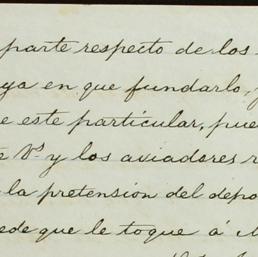 parte respecto de los
ya en que fundarlo,
e este particular, pue
e Vs y los aviadores r
la pretension del depo
ede que le toque á